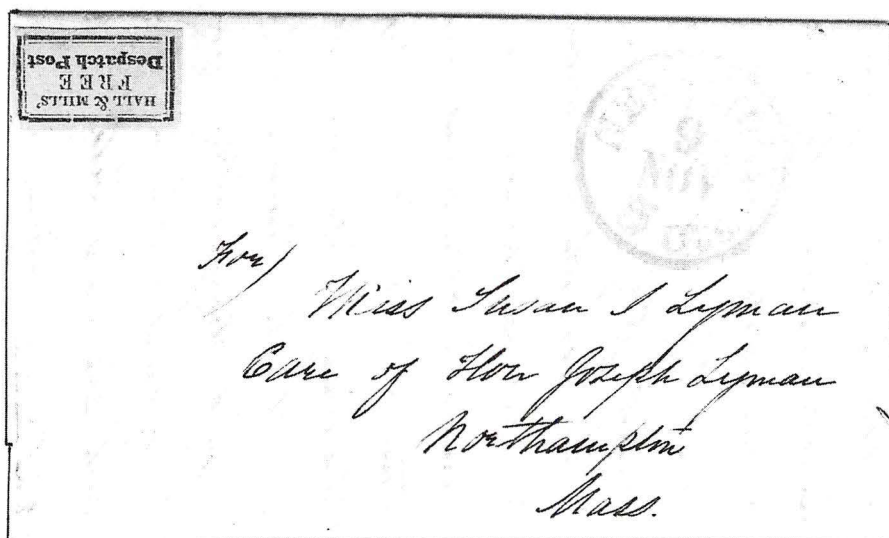 HALL & MILLS'
FREE
Despatch Post
9
NOV
For)
Miss Susan I Lyman
Care of Hon Joseph Lyman
Northampton
Mass.